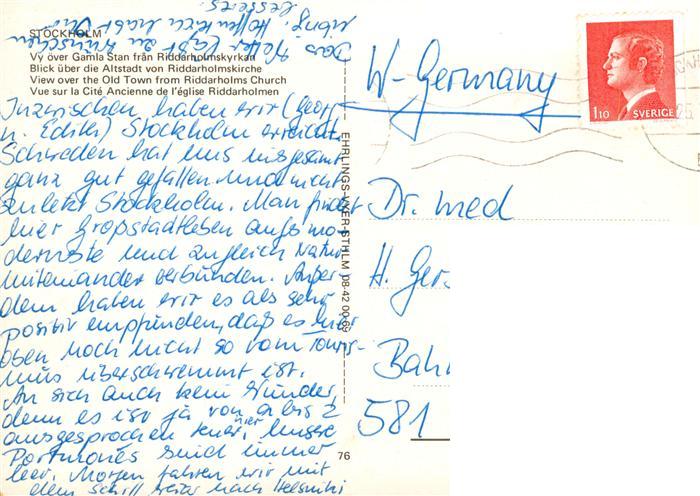 STOCKHOLM
Vy över Gamla Stan från Riddarholmskyrkan
Blick über die Altstadt von Riddarholmskirche
View over the Old Town from Riddarholms Church
Vue sur la Cité Ancienne de l'église Riddarholmen
Inzwischen haben wir (Georg
u. Edith) Stockholm erreicht.
Schweden hat uns insgesamt
ganz gut gefallen und nicht
zuletzt Stockholm. Man findet
hier Großstadtleben aufs mo-
dernste und zugleich Natur
miteinander verbunden. Außer-
dem haben wir es als sehr
positiv empfunden, daß es hier
oben noch nicht so vom Touris-
mus überschwemmt ist.
An sich auch kein Wunder,
denn es ist ja von a bis z
ausgesprochen teuer, hier unsere
Portmonés sind immer
leer. Morgen fahren wir mit
dem Schiff weiter nach Helsinki
Das Wetter läßt zu wünschen
übrig. Hoffentlich habt Ihr
besseres.
EHRLINGS-VYER-STHLM 08-42 00 69
76
1 10 SVERIGE
W-Germany
Dr. med
H. Ger
Bah
581